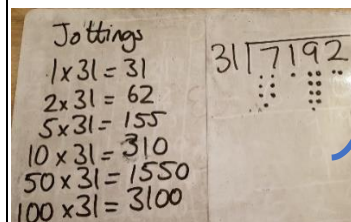 Jottings
1 x 31 = 31
2 x 31 = 62
5 x 31 = 155
10 x 31 = 310
50 x 31 = 1550
100 x 31 = 3100
31 7192